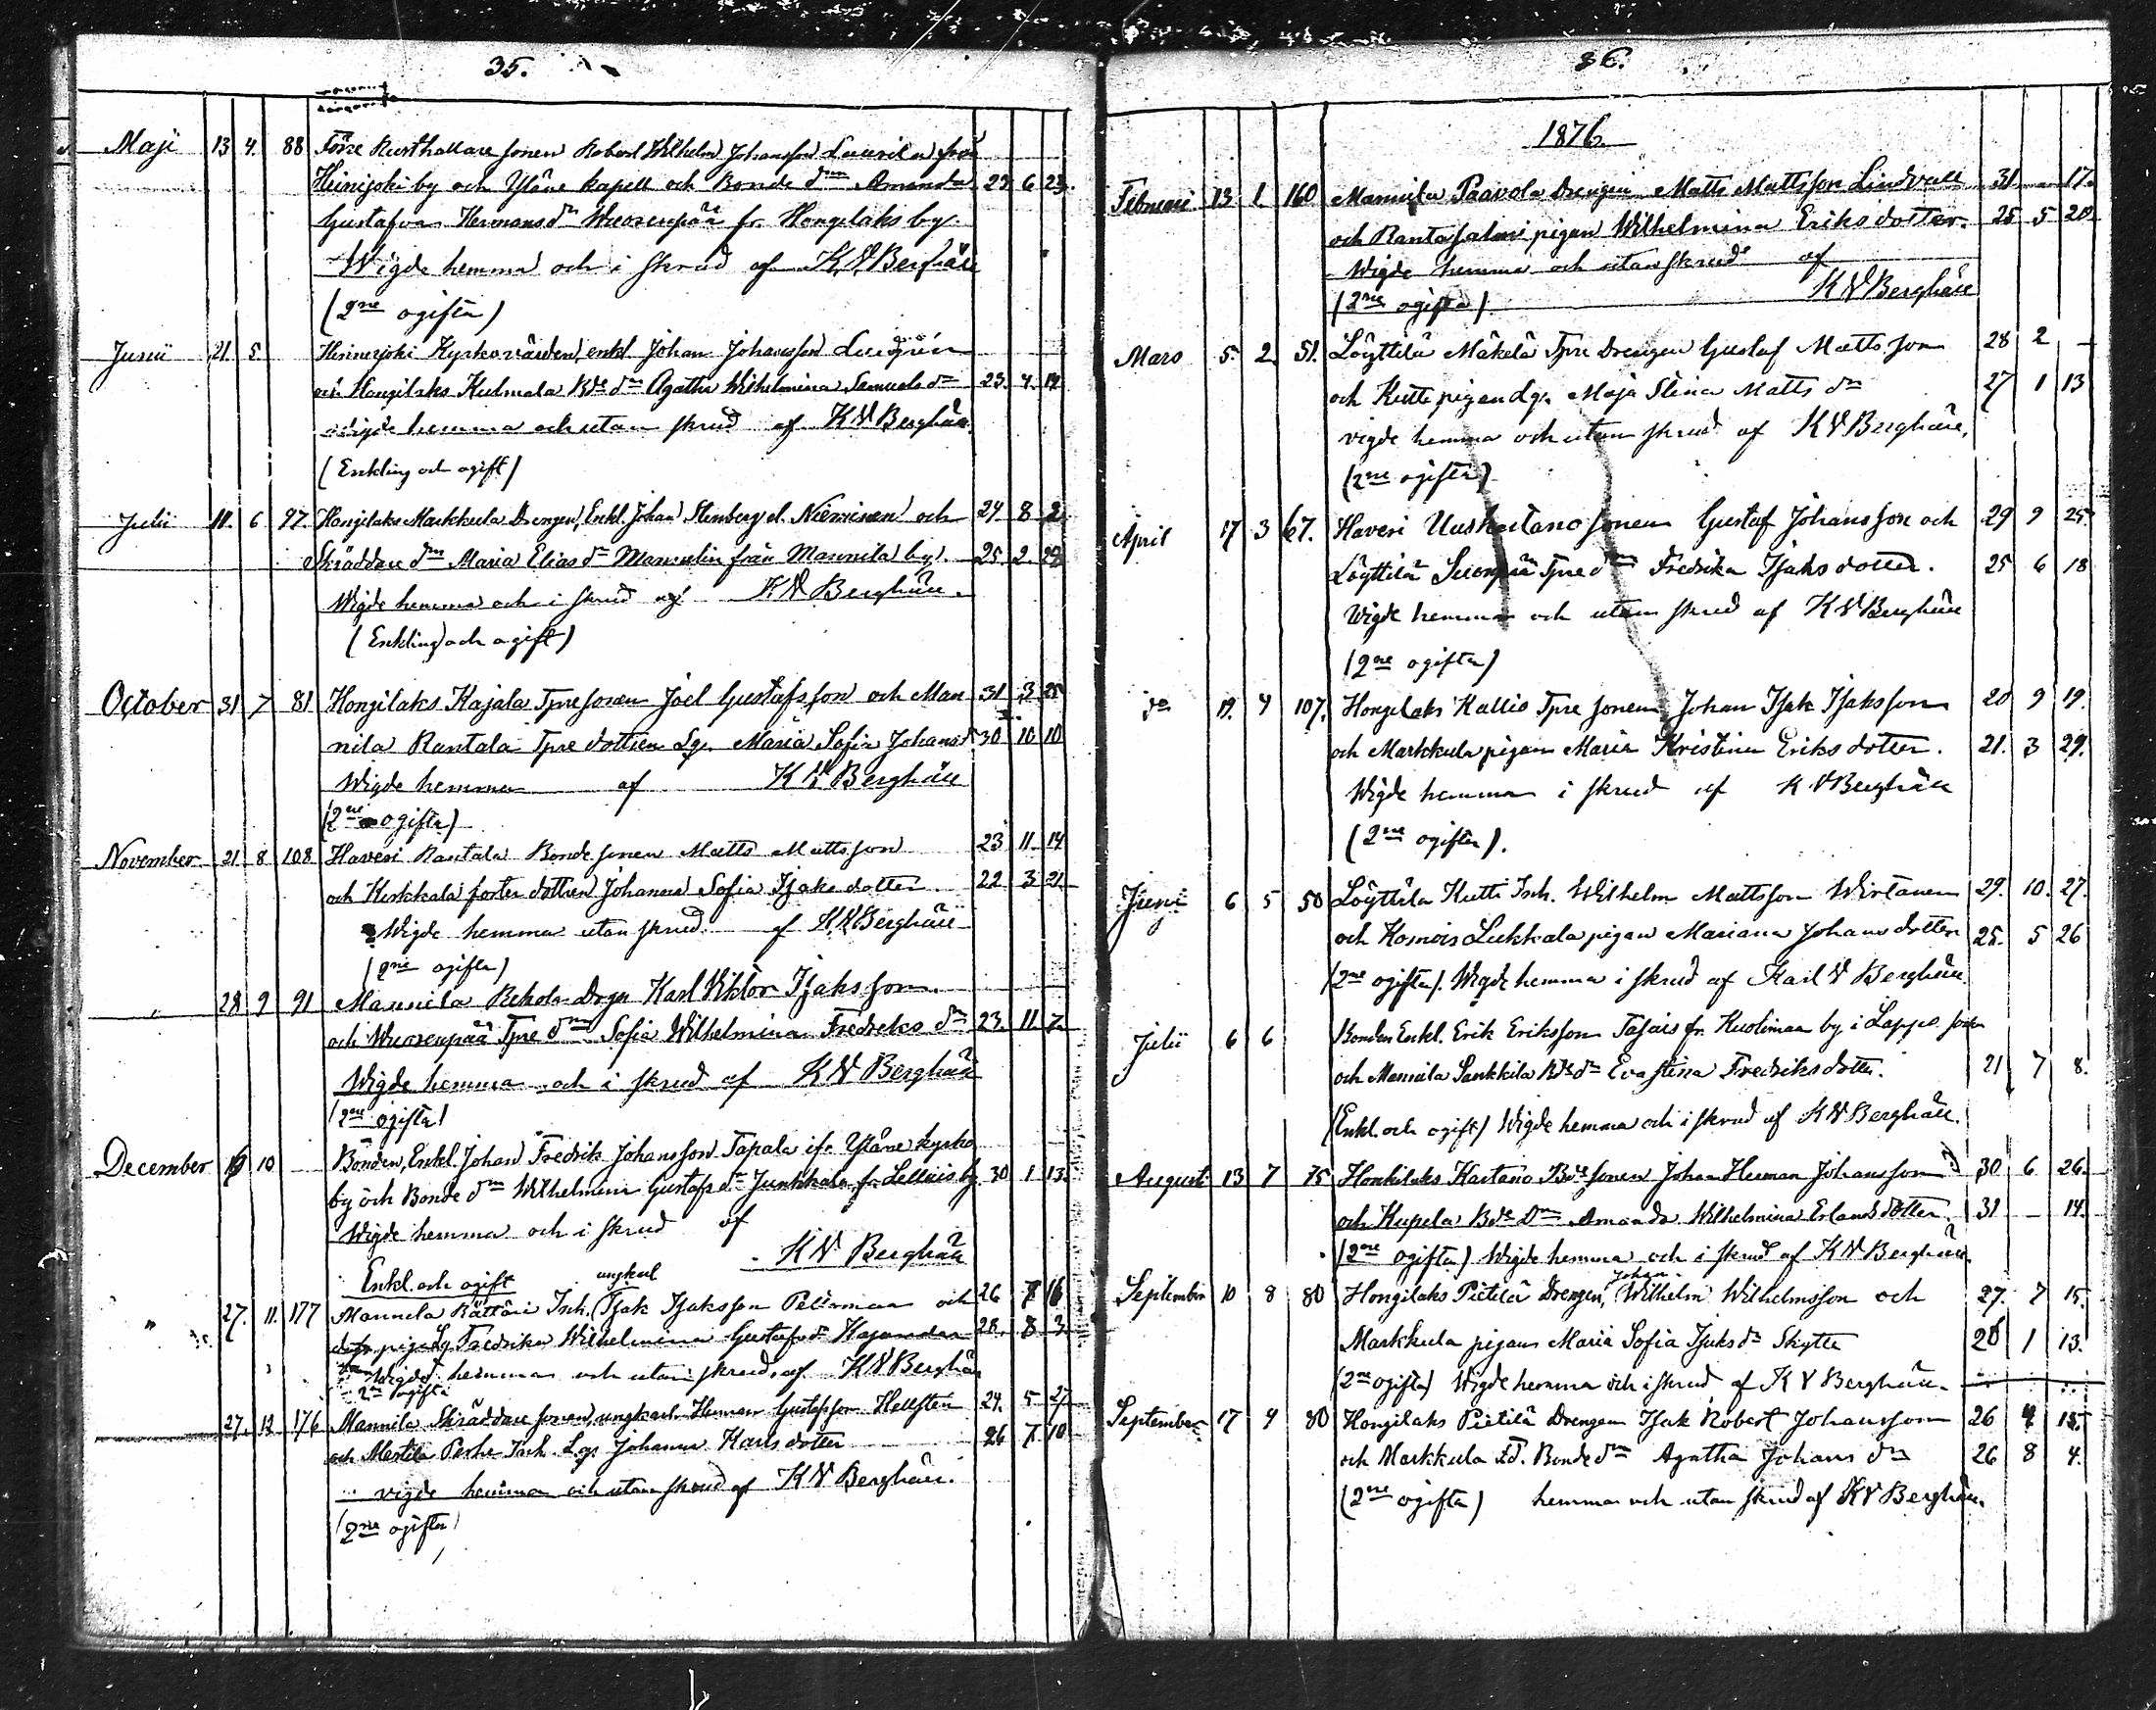 35.
Maji 13 4. 88 Förre Rusthållare sonen Robert Wilhelm Johansson Laurila från
Heinijoki by och Yläne Kapell och Bonde dn Amanda 23 6 23.
Gustafva Hermans dn Wuorenpää fr. Hongilaks by.
Wigde hemma och i skrud af K V Berghäll
(2ne ogifta)
Junii 21. 5. Heinijoki Kyrkovärden, enkl Johan Johansson
och Hongilaks Kulmala Bde dn Agatha Wilhelmina Samuels dn 23. 4. 14
wigde hemma och utan skrud af K V Berghäll
(Enkling och ogift)
Julii 11. 6 97. Hongilaks Markkula Drengen, Enkl. Johan Stenberg el. Nieminen och 24 8 2
Skräddare dn Maria Elias dn Mannelin från Mannila by. 25 2. 29
Wigde hemma och i skrud af K V Berghäll.
(Enkling och ogift)
October 31 7 81 Hongilaks Kajala Tpre sonen Joel Gustafsson och Man- 31 3 25
nila Rantala Tpre dottren Lgr. Maria Sofia Johans d 30 10 10
Wigde hemma af K V Berghäll
(2ne ogifta)
November 21 8 108 Haveri Rantala Bonde sonen Matts Mattsson 23 11 14
och Kerkkala foster dottren Johanna Sofia Isaks dotter 22 3 21
Wigde hemma utan skrud af K V Berghäll
(2ne ogifta)
" 28 9 91 Mannila Rekola Drgn Karl Viktor Isaksson.
och Wuorenpää Tpre dn Sofia Wilhelmina Fredriks dn 23. 11 7.
Wigde hemma och i skrud af K V Berghäll
(2ne ogifta)
December 10 Bonden, Enkl. Johan Fredrik Johansson Tapala ifr. Yläne kyrko
by och Bonde dn Wilhelmina Gustafs dn Junkkala fr. Lellais by 30 1 13.
Wigde hemma och i skrud af
K V Berghäll
Enkl. och ogift
ungkarl
" 27. 11. 177 Mannila Rättäri Inh. (Isak Isaksson Pellonmaa och 26 16
pig Lg Fredrika Wilhelmina Gustafs dn 28. 8 3.
Wigde hemma och utan skrud, af K V Berghäll
2ne ogifta
27. 12 176 Mannila Skräddare sonen, ungkarl Herman Gustafsson Hellsten 24. 5 27
och Mestilä Perhe Inh. Lgr Johanna Karls dotter 26 7 10
vigde hemma och utan skrud af K V Berghäll.
(2ne ogifta)
36.
1876.
Februari 13 1 160 Mannila Paavola Drengen Matts Mattsson Lindvall 31 - 17.
och Rantasalmi pigan Wilhelmina Eriks dotter. 25 5 20
Wigde hemma och utan skrud af
(2ne ogifta) K V Berghäll
Mars 5. 2 51. Löyttilä Mäkelä Tpre Drengen Gustaf Mattsson 28 2 -
och Kutti pigan Lgr. Maja Stina Matts dn 27 1 13
vigde hemma och utan skrud af K V Berghäll,
(2ne ogifta)
April 17 3 67. Haveri Uusitalo sonen Gustaf Johansson och 29 9 25.
Löyttilä Tpre dn Fredrika Isaks dotter. 25 6 18
Wigde hemma och utan skrud af K V Berghäll
(2ne ogifta)
do 19. 4 107. Hongilaks Kallio Tpre sonen Johan Isak Isaksson 20 9 19.
och Markkula pigan Maria Kristina Eriks dotter. 21. 3 29.
Wigde hemma i skrud af K V Berghäll
(2ne ogifta).
Juni 6 5 50 Löyttilä Kutti Inh. Wilhelm Mattsson Wirtanen 29. 10. 27.
och Kornois Lukkala pigan Mariana Johans dotter 25. 5 26
(2ne ogifta). Wigde hemma i skrud af Karl V Berghäll.
Julii 6 6 Bonden Enkl. Erik Eriksson fr. Kuolimaa by i Lappo sockn
och Mannila Sankkila Bde dn Evastina Fredriks dotter. 21 7 8.
(Enkl. och ogift) Wigde hemma och i skrud af K V Berghäll.
August 13 7 75 Honkilaks Kartano Bde sonen Johan Herman Johansson 30 6 26.
och Kupela Bde Dn Amanda Wilhelmina Erlands dotter. 31 - 14.
(2ne ogifta) Wigde hemma och i skrud af K V Berghäll.
Johan
September 10 8 80 Hongilaks Pietilä Drengen, Wilhelm Wilhelmsson och 27. 7 15.
Markkula pigan Maria Sofia Isaks dn Skytte 26 1 13.
(2ne ogifta) Wigde hemma och i skrud af K V Berghäll.
September 17 9 80 Hongilaks Pietilä Drengen Isak Robert Johansson 26 4 15.
och Markkula Fd. Bonde dn Agatha Johans dn 26 8 4.
(2ne ogifta) hemma och utan skrud af K V Berghäll.